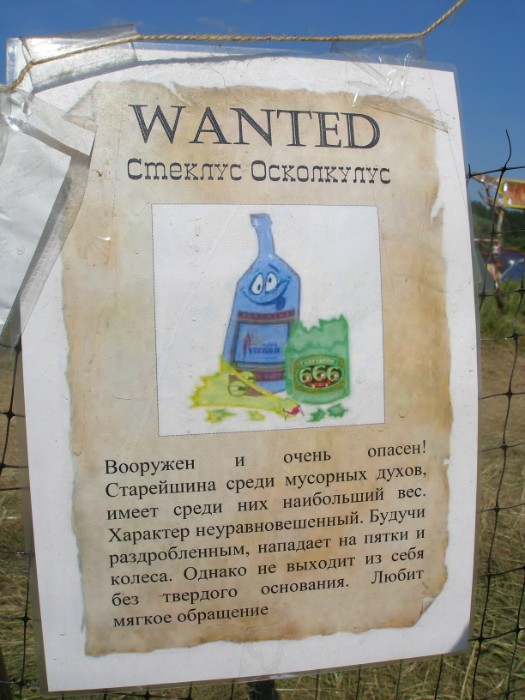 WANTED
Стеклус Осколкулус
666
Вооружен и очень опасен!
Старейшина среди мусорных духов,
имеет среди них наибольший вес.
Характер неуравновешенный. Будучи
раздробленным, нападает на пятки и
колеса. Однако не выходит из себя
без твердого основания. Любит
мягкое обращение